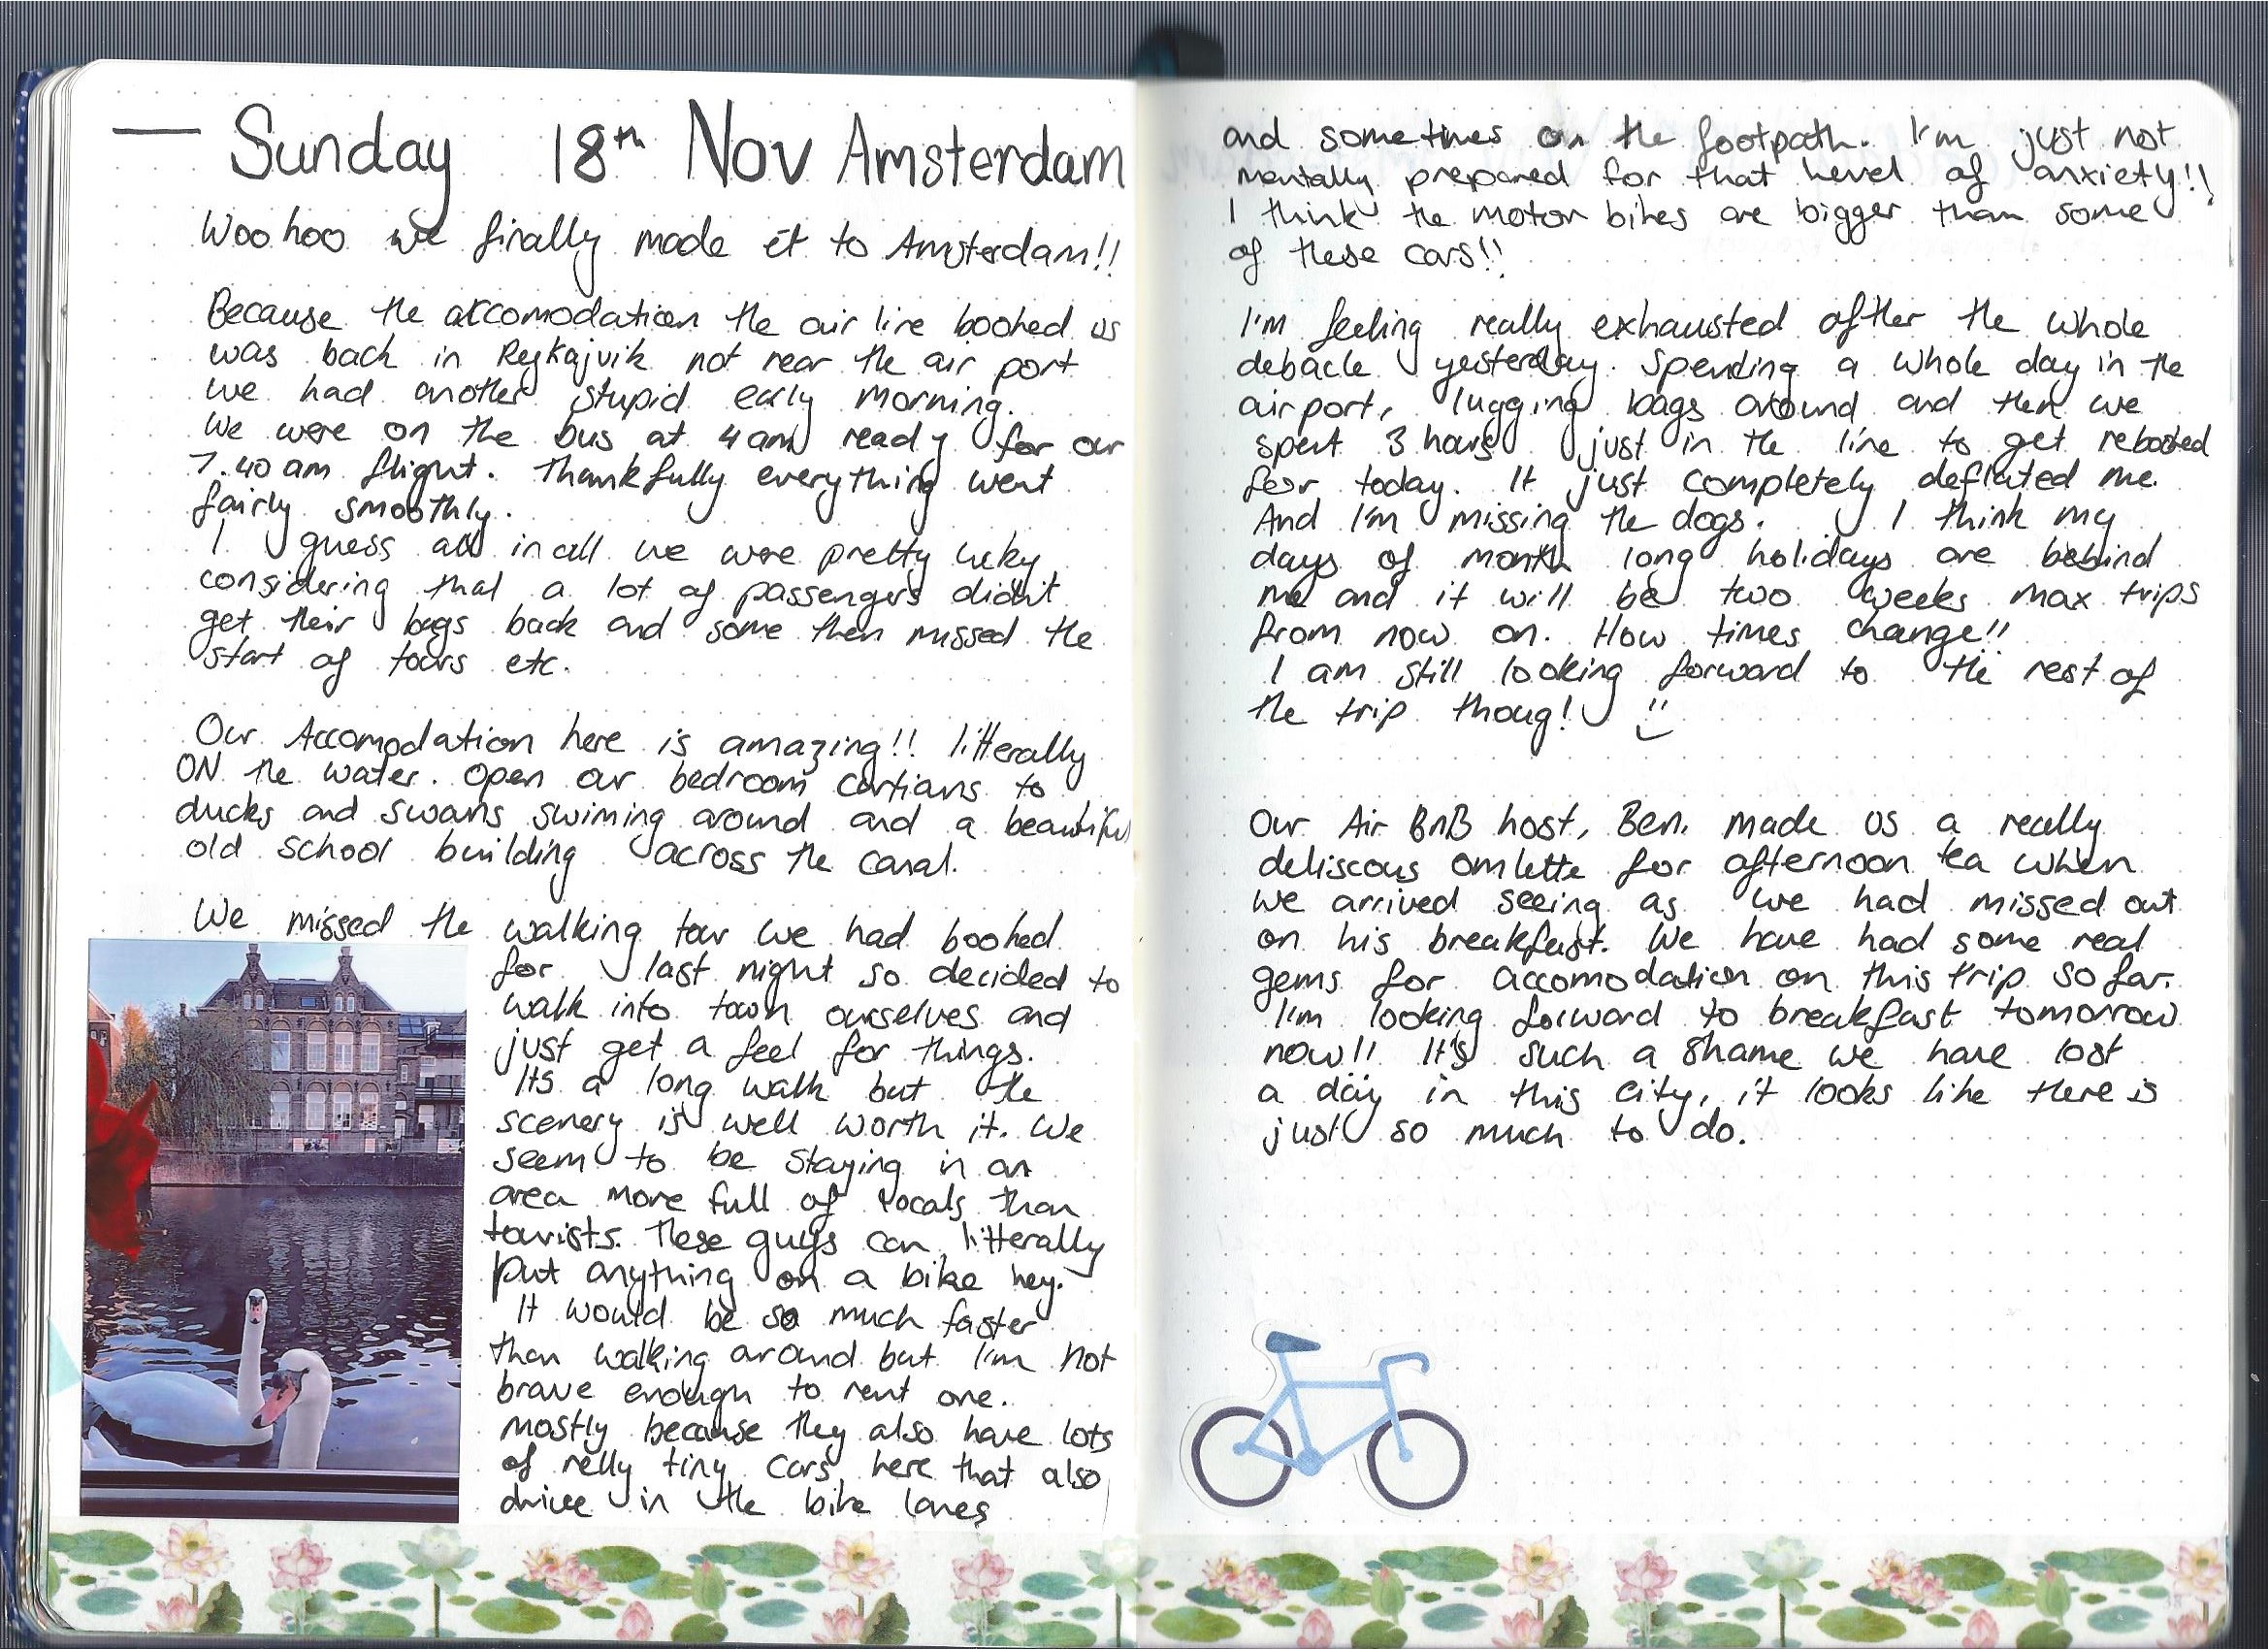 — Sunday 18th Nov Amsterdam
Woohoo we finally made it to Amsterdam!!
Because the accomodation the air line booked us
was back in Reykajvik not near the air port
we had another stupid early morning.
We were on the bus at 4am ready for our
7.40am flight. Thankfully everything went
fairly smoothly.
I guess all in all we were pretty lucky
considering that a lot of passengers didn't
get their bags back and some then missed the
start of tours etc.
Our Accomodation here is amazing!! litterally
ON the water. Open our bedroom cartians to
ducks and swans swiming around and a beautiful
old school building across the canal.
We missed the walking tour we had booked
for last night so decided to
walk into town ourselves and
just get a feel for things.
Its a long walk but the
scenery is well worth it. We
seem to be staying in an
area more full of locals than
tourists. These guys can litterally
put anything on a bike hey.
It would be so much faster
than walking around but I'm not
brave enough to rent one.
mostly because they also have lots
of relly tiny cars here that also
drive in the bike lanes
and sometimes on the footpath. I'm just not
mentally prepared for that level of anxiety!!
I think the motor bikes are bigger than some
of these cars!!
I'm feeling really exhausted after the whole
debacle yesterday. Spending a whole day in the
airport, lugging bags around and then we
spent 3 hours just in the line to get rebooked
for today. It just completely deflated me.
And I'm missing the dogs. I think my
days of month long holidays are behind
me and it will be two weeks max trips
from now on. How times change!!
I am still looking forward to the rest of
the trip thoug! :)
Our Air BnB host, Ben, made us a really
deliscous omlette for afternoon tea when
we arrived seeing as we had missed out
on his breakfast. We have had some real
gems for accomodation on this trip so far.
I'm looking forward to breakfast tomorrow
now!! It's such a shame we have lost
a day in this city, it looks like there is
just so much to do.